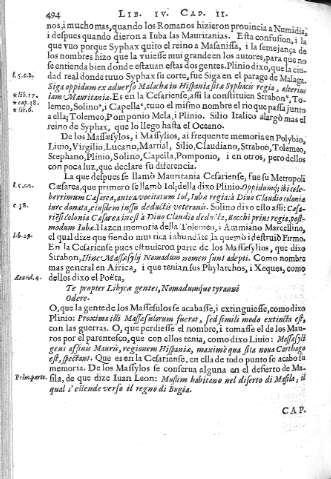 494 LIB. IV. CAP. II.
nos, i mucho mas, quando los Romanos hizieron provincia a Numidia,
i despues quando dieron a Iuba las Mauritanias. Esta confusion, i la
que vuo porque Syphax quito el reino a Masanissa, i la semejança de
los nombres hizo que la vuiesse mui grande en los autores, para que no
se entienda bien donde estauan estas dos gentes. Plinio dize, que la ciu-
l.5.c.2. dad real donde tuuo Syphax su corte, fue Siga en el parage de Malaga.
Siga oppidum ex aduerso Malachæ in Hispania sita Syphacis regia, alterius
a lib.17. iam Mauritania. E i en la Cesariense, assi la constituien Strabon a, To-
b cap.38. lemeo, Solino b, i Capella c, tuuo el mismo nombre el rio que passa junto
c lib.6. a ella; Tolemeo, Pomponio Mela, i Plinio. Silio Italico alargò mas el
reino de Syphax, que lo llego hasta el Oceano.
De los Massesylos, i Massylos, ai frequente memoria en Polybio,
Liuio, Virgilio, Lucano, Martial, Silio, Claudiano, Strabon, Tolemeo,
Stephano, Plinio, Solino, Capella, Pomponio, i en otros, pero dellos
con poca luz, que declare su diferencia.
La que despues se llamò Mauritania Cesariense, fue su Metropoli
l.5.c.2. Cæsarea, que primero se llamò Iol; della dixo Plinio. Oppidum ibi cele-
berrimum Cæsarea, ante vocitatum Iol, Iubæ regia à Diuo Claudio colonia
c.38. iure donata, eiusdem iussu deductis veteranis. Solino dixo esto assi: Cæsa-
riensi colonia Cæsarea inest à Diuo Claudio deducta, Bocchi prius regia, post-
modum Iubæ. Hazen memoria della Tolemeo, i Ammiano Marcellino,
lib.29. el qual dize que siendo mui rica i abundante la quemò i destruiò Firmo.
En la Cesariense pues estuuieron parte de los Massesylios, que dixo
Strabon, Hinc Massæsylij Nomadum nomen sunt adepti. Como nombre
mas general en Africa, i que tenian sus Phylarchos, i Xeques, como
Æneid.4. dellos dixo el Poëta,
Te propter Libycæ gentes, Nomadumque tyranni
Odere.
O, que la gente de los Massesulos se acabasse, i extinguiesse, como dixo
Plinio: Proxima illi Massæsulorum fuere, sed simili modo extincta est,
con las guerras. O, que perdiesse el nombre, i tomasse el de los Mau-
ros por el parentesco, que con ellos tenia, como dixo Liuio: Massæsyli
gens affinis Mauris, regionem Hispaniæ, maximè qua sita noua Carthago
est, spectant. Que es en la Cesariense, en ella de todo punto se acabo su
memoria. De los Massylos se conserua alguna en el desierto de Mas-
Prim.parte. sila, de que dize Iuan Leon: Musium habitano nel diserto di Masila, il
qual s'estende verso il regno di Bugia.
CAP.